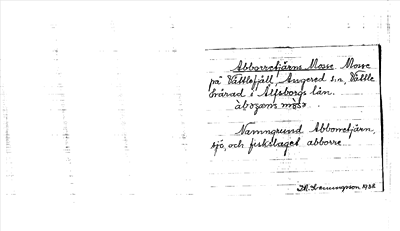 Abborretjärns Mosse. Mosse
på Vättlefjäll, Angered s:n, Vättle
härad i Älfsborgs län.
Namngrund Abborretjärn,
sjö, och fiskslaget abborre.
1932